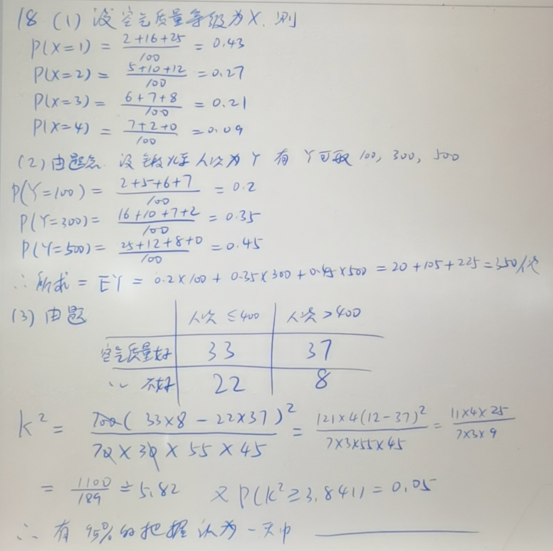 18 (1) 设空气质量等级为X, 则
P(X=1) = (2+16+25)/100 = 0.43
P(X=2) = (5+10+12)/100 = 0.27
P(X=3) = (6+7+8)/100 = 0.21
P(X=4) = (7+2+0)/100 = 0.09
(2) 由题意 设 人次为Y 有 Y可取 100, 300, 500
P(Y=100) = (2+5+6+7)/100 = 0.2
P(Y=300) = (16+10+7+2)/100 = 0.35
P(Y=500) = (25+12+8+0)/100 = 0.45
∴ 所求 = EY = 0.2×100 + 0.35×300 + 0.45×500 = 20+105+225 = 350
(3) 由题
人次≤400 人次>400
空气质量好 33 37
〃 不好 22 8
K² = 100(33×8-22×37)²/(70×30×55×45) = 121×4(12-37)²/(7×3×55×45) = 11×4×25/(7×3×9)
= 1100/189 ≐ 5.82 又 P(K²≥3.841) = 0.05
∴ 有95%的把握认为一天中